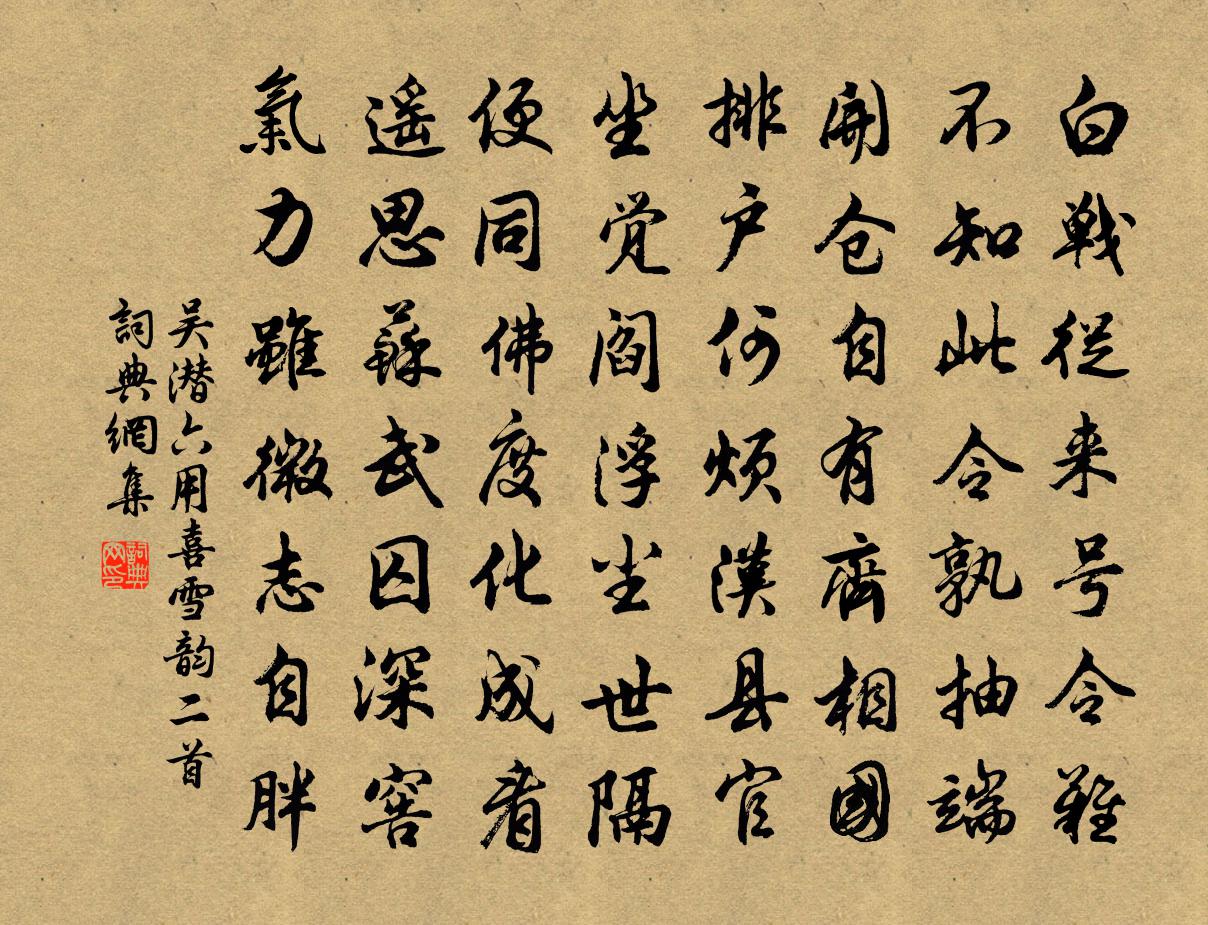 白戦從来号令難
不知此令孰抽端
開仓自有齊相國
排户何煩漢县官
坐觉阎浮尘世隔
便同佛度化成看
遥思蘇武囚深窖
氣力雖微志自胖
吴潜六用喜雪韵二首
詞典網集
詞典网印